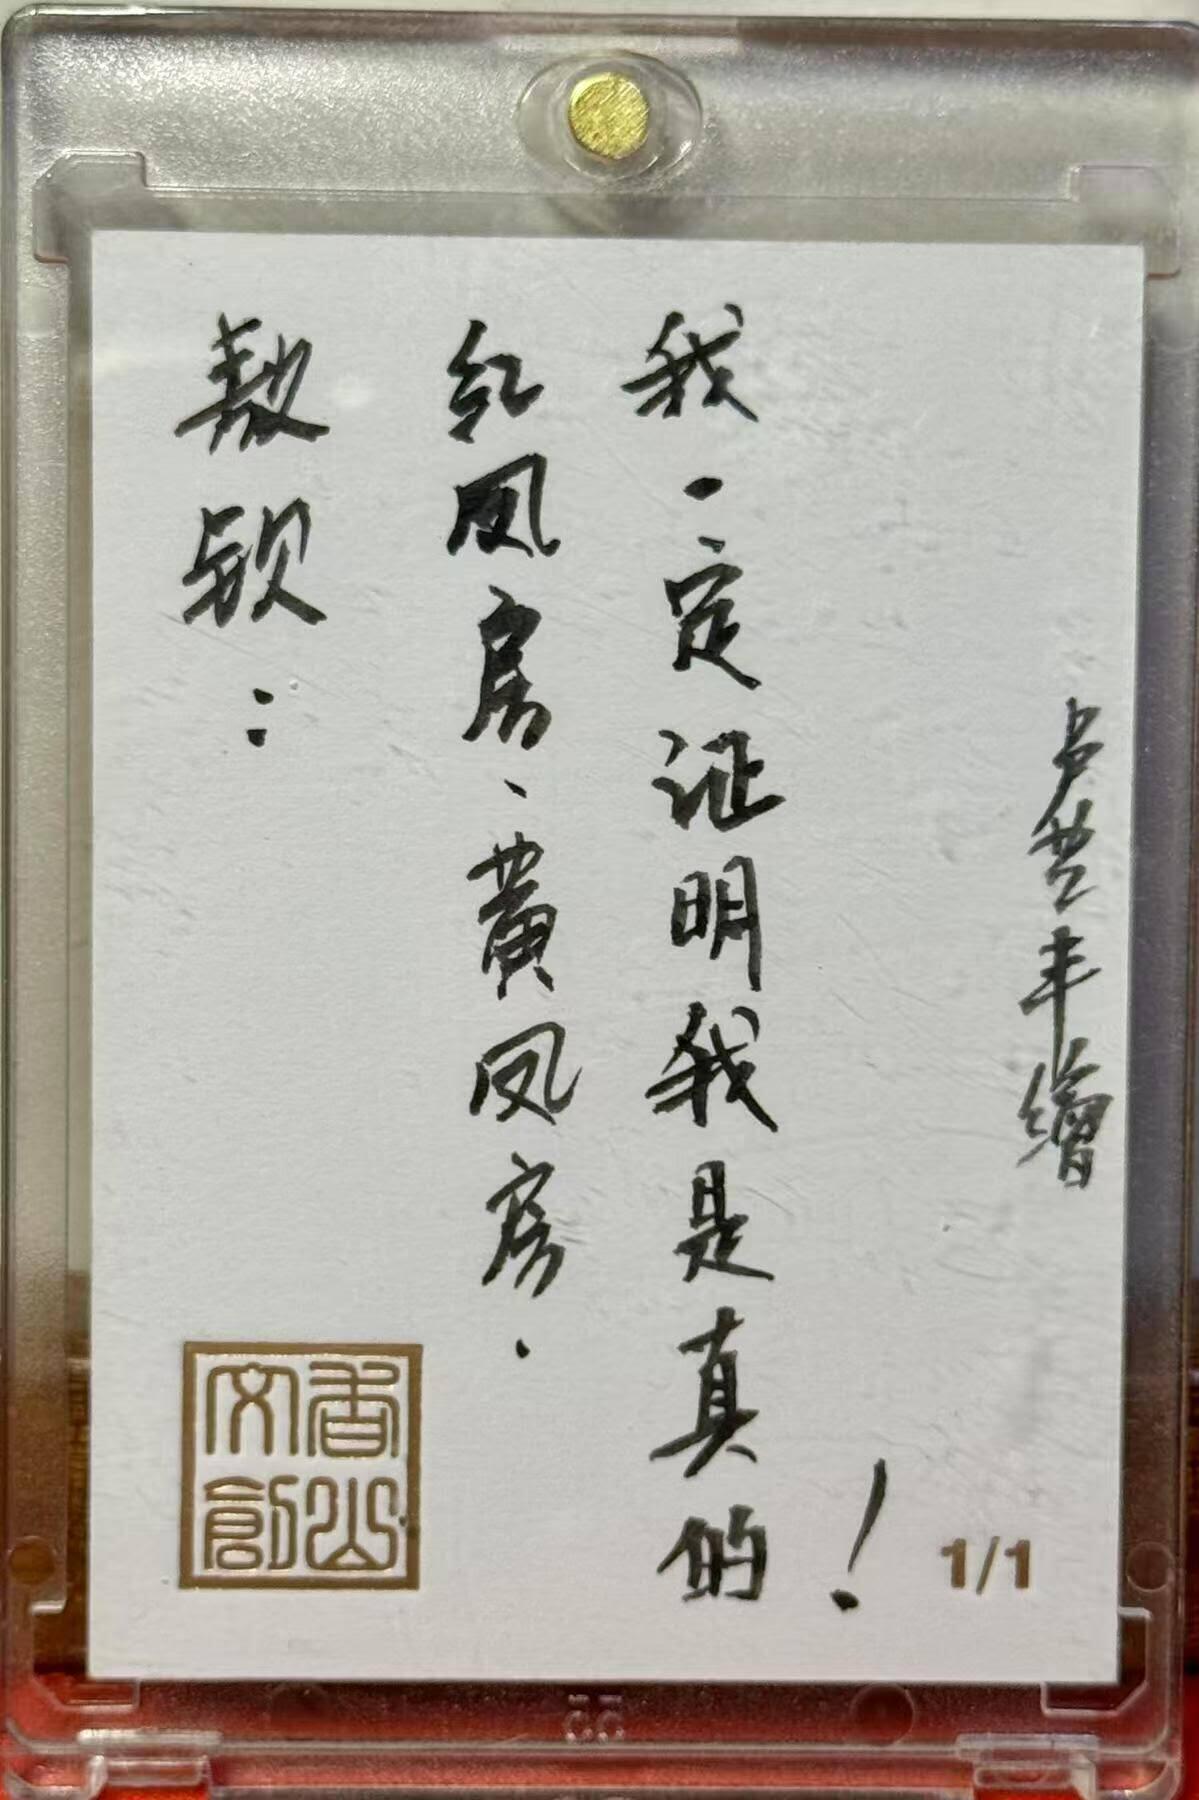 敖钦：
红凤房、黄凤房.
我一定证明我是真的！
卢芸丰繪
香山文創
1/1